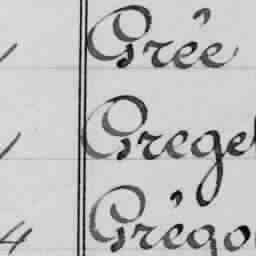 Grée
Grege
4 Grégo